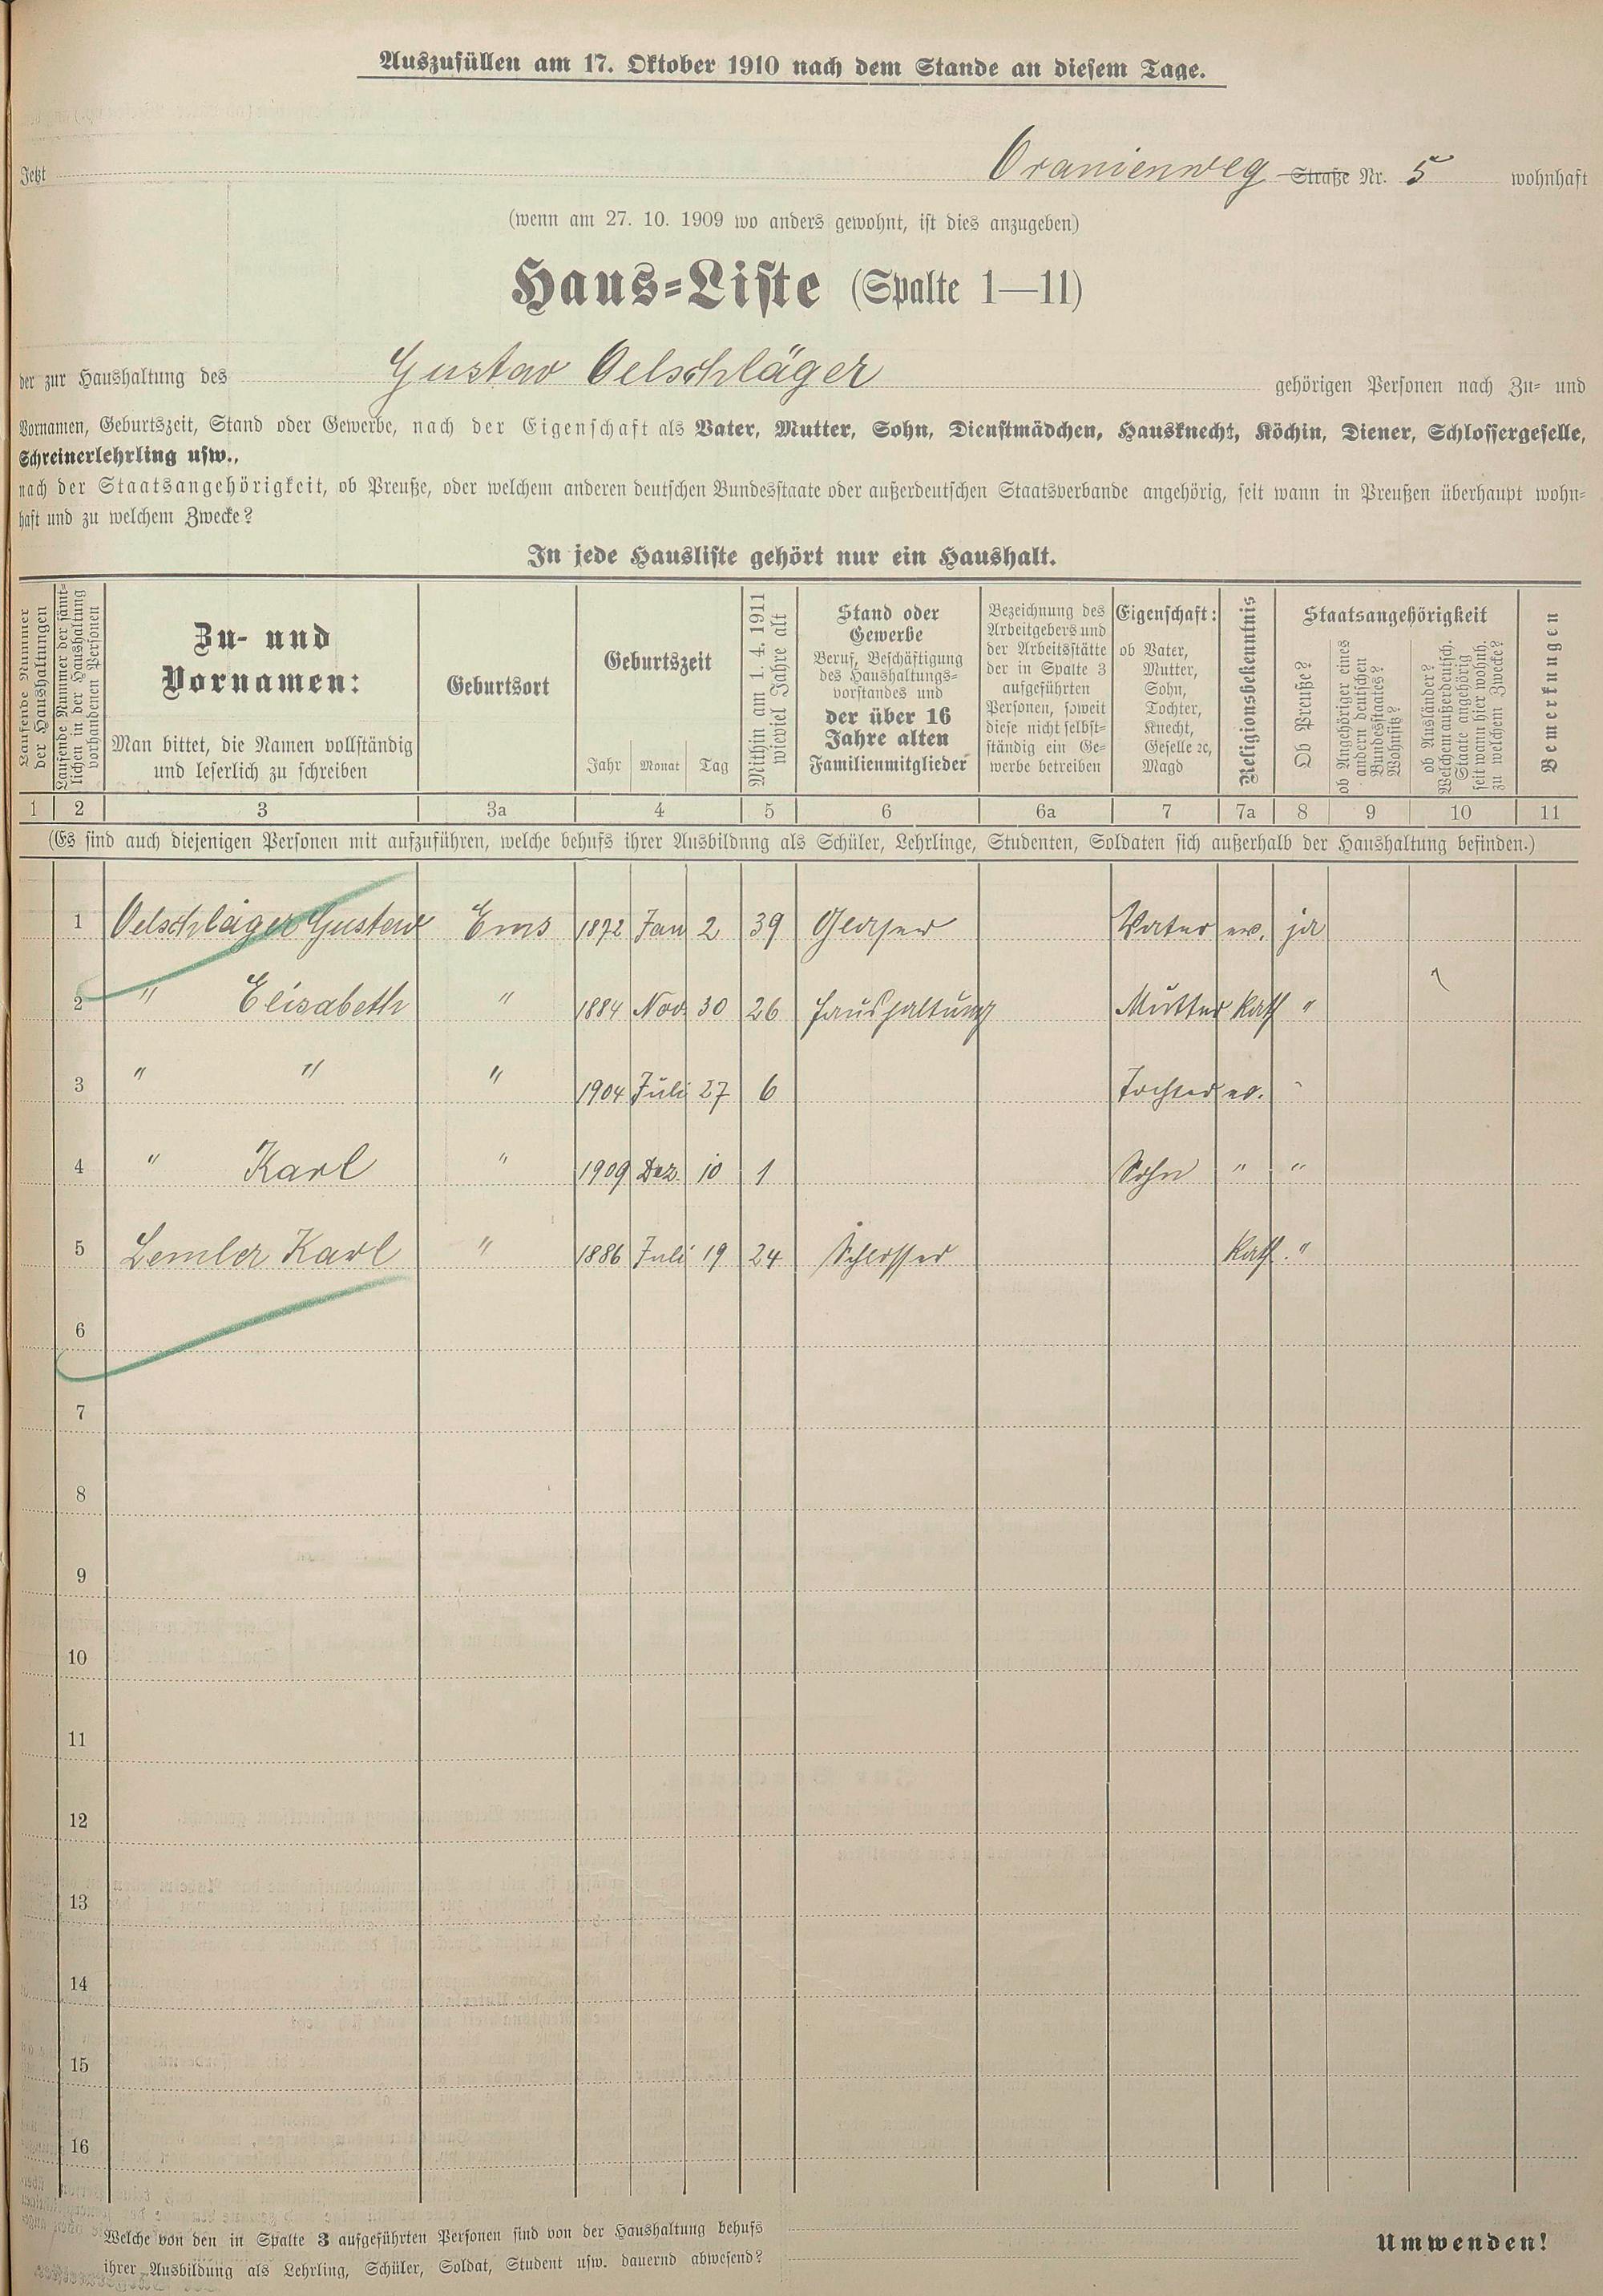 Auszufüllen am 17. Oktober 1910 nach dem Stande an diesem Tage.
Jetzt Oranienweg Straße Nr. 5 wohnhaft
(wenn am 27. 10. 1909 wo anders gewohnt, ist dies anzugeben)
Haus-Liste (Spalte 1—11)
der zur Haushaltung des Gustav Oelschläger gehörigen Personen nach Zu- und
Vornamen, Geburtszeit, Stand oder Gewerbe, nach der Eigenschaft als Vater, Mutter, Sohn, Dienstmädchen, Hausknecht, Köchin, Diener, Schlossergeselle,
Schreinerlehrling usw.,
nach der Staatsangehörigkeit, ob Preuße, oder welchem anderen deutschen Bundesstaate oder außerdeutschen Staatsverbande angehörig, seit wann in Preußen überhaupt wohn-
haft und zu welchem Zwecke?
In jede Hausliste gehört nur ein Haushalt.
Laufende Nummer
der Haushaltungen
Laufende Nummer der sämt-
lichen in der Haushaltung
vorhandenen Personen
Zu- und
Vornamen:
Man bittet, die Namen vollständig
und leserlich zu schreiben
Geburtsort
Geburtszeit
Jahr Monat Tag
Mithin am 1. 4. 1911
wieviel Jahre alt
Stand oder
Gewerbe
Beruf, Beschäftigung
des Haushaltungs-
vorstandes und
der über 16
Jahre alten
Familienmitglieder
Bezeichnung des
Arbeitgebers und
der Arbeitsstätte
der in Spalte 3
aufgeführten
Personen, soweit
diese nicht selbst-
ständig ein Ge-
werbe betreiben
Eigenschaft:
ob Vater,
Mutter,
Sohn,
Tochter,
Knecht,
Geselle ꝛc,
Magd
Religionsbekenntnis
Staatsangehörigkeit
Ob Preuße?
ob Angehöriger eines
andern deutschen
Bundesstaates?
Wohnsitz?
ob Ausländer?
Welchem außerdeutsch.
Staate angehörig
seit wann hier wohnh.
zu welchem Zwecke?
Bemerkungen
1 2 3 3a 4 5 6 6a 7 7a 8 9 10 11
(Es sind auch diejenigen Personen mit aufzuführen, welche behufs ihrer Ausbildung als Schüler, Lehrlinge, Studenten, Soldaten sich außerhalb der Haushaltung befinden.)
1 Oelschläger Gustav Ems 1872 Jan 2 39 Glaser Vater ev. ja
2 " Elisabeth " 1884 Nov. 30 26 Haushaltung Mutter kath "
3 " " " 1904 Juli 27 6 Tochter ev. "
4 " Karl " 1909 Dez. 10 1 Sohn " "
5 Lemler Karl " 1886 Juli 19 24 Schlosser kath. "
6
7
8
9
10
11
12
13
14
15
16
Welche von den in Spalte 3 aufgeführten Personen sind von der Haushaltung behufs
ihrer Ausbildung als Lehrling, Schüler, Soldat, Student usw. dauernd abwesend?
Umwenden!